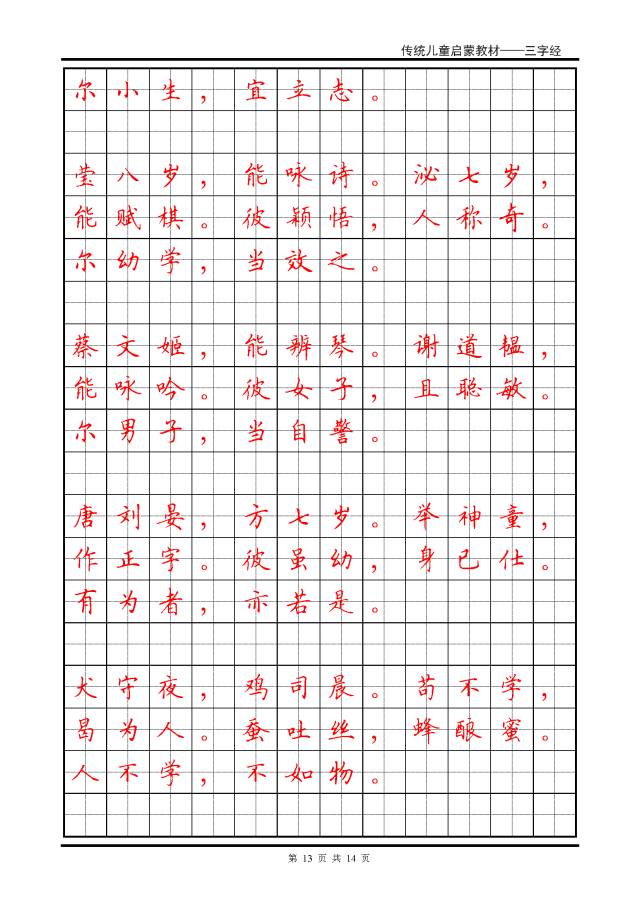 传统儿童启蒙教材——三字经
尔小生，宜立志。
莹八岁，能咏诗。泌七岁，
能赋棋。彼颖悟，人称奇。
尔幼学，当效之。
蔡文姬，能辨琴。谢道韫，
能咏吟。彼女子，且聪敏。
尔男子，当自警。
唐刘晏，方七岁。举神童，
作正字。彼虽幼，身已仕。
有为者，亦若是。
犬守夜，鸡司晨。苟不学，
曷为人。蚕吐丝，蜂酿蜜。
人不学，不如物。
第 13 页 共 14 页